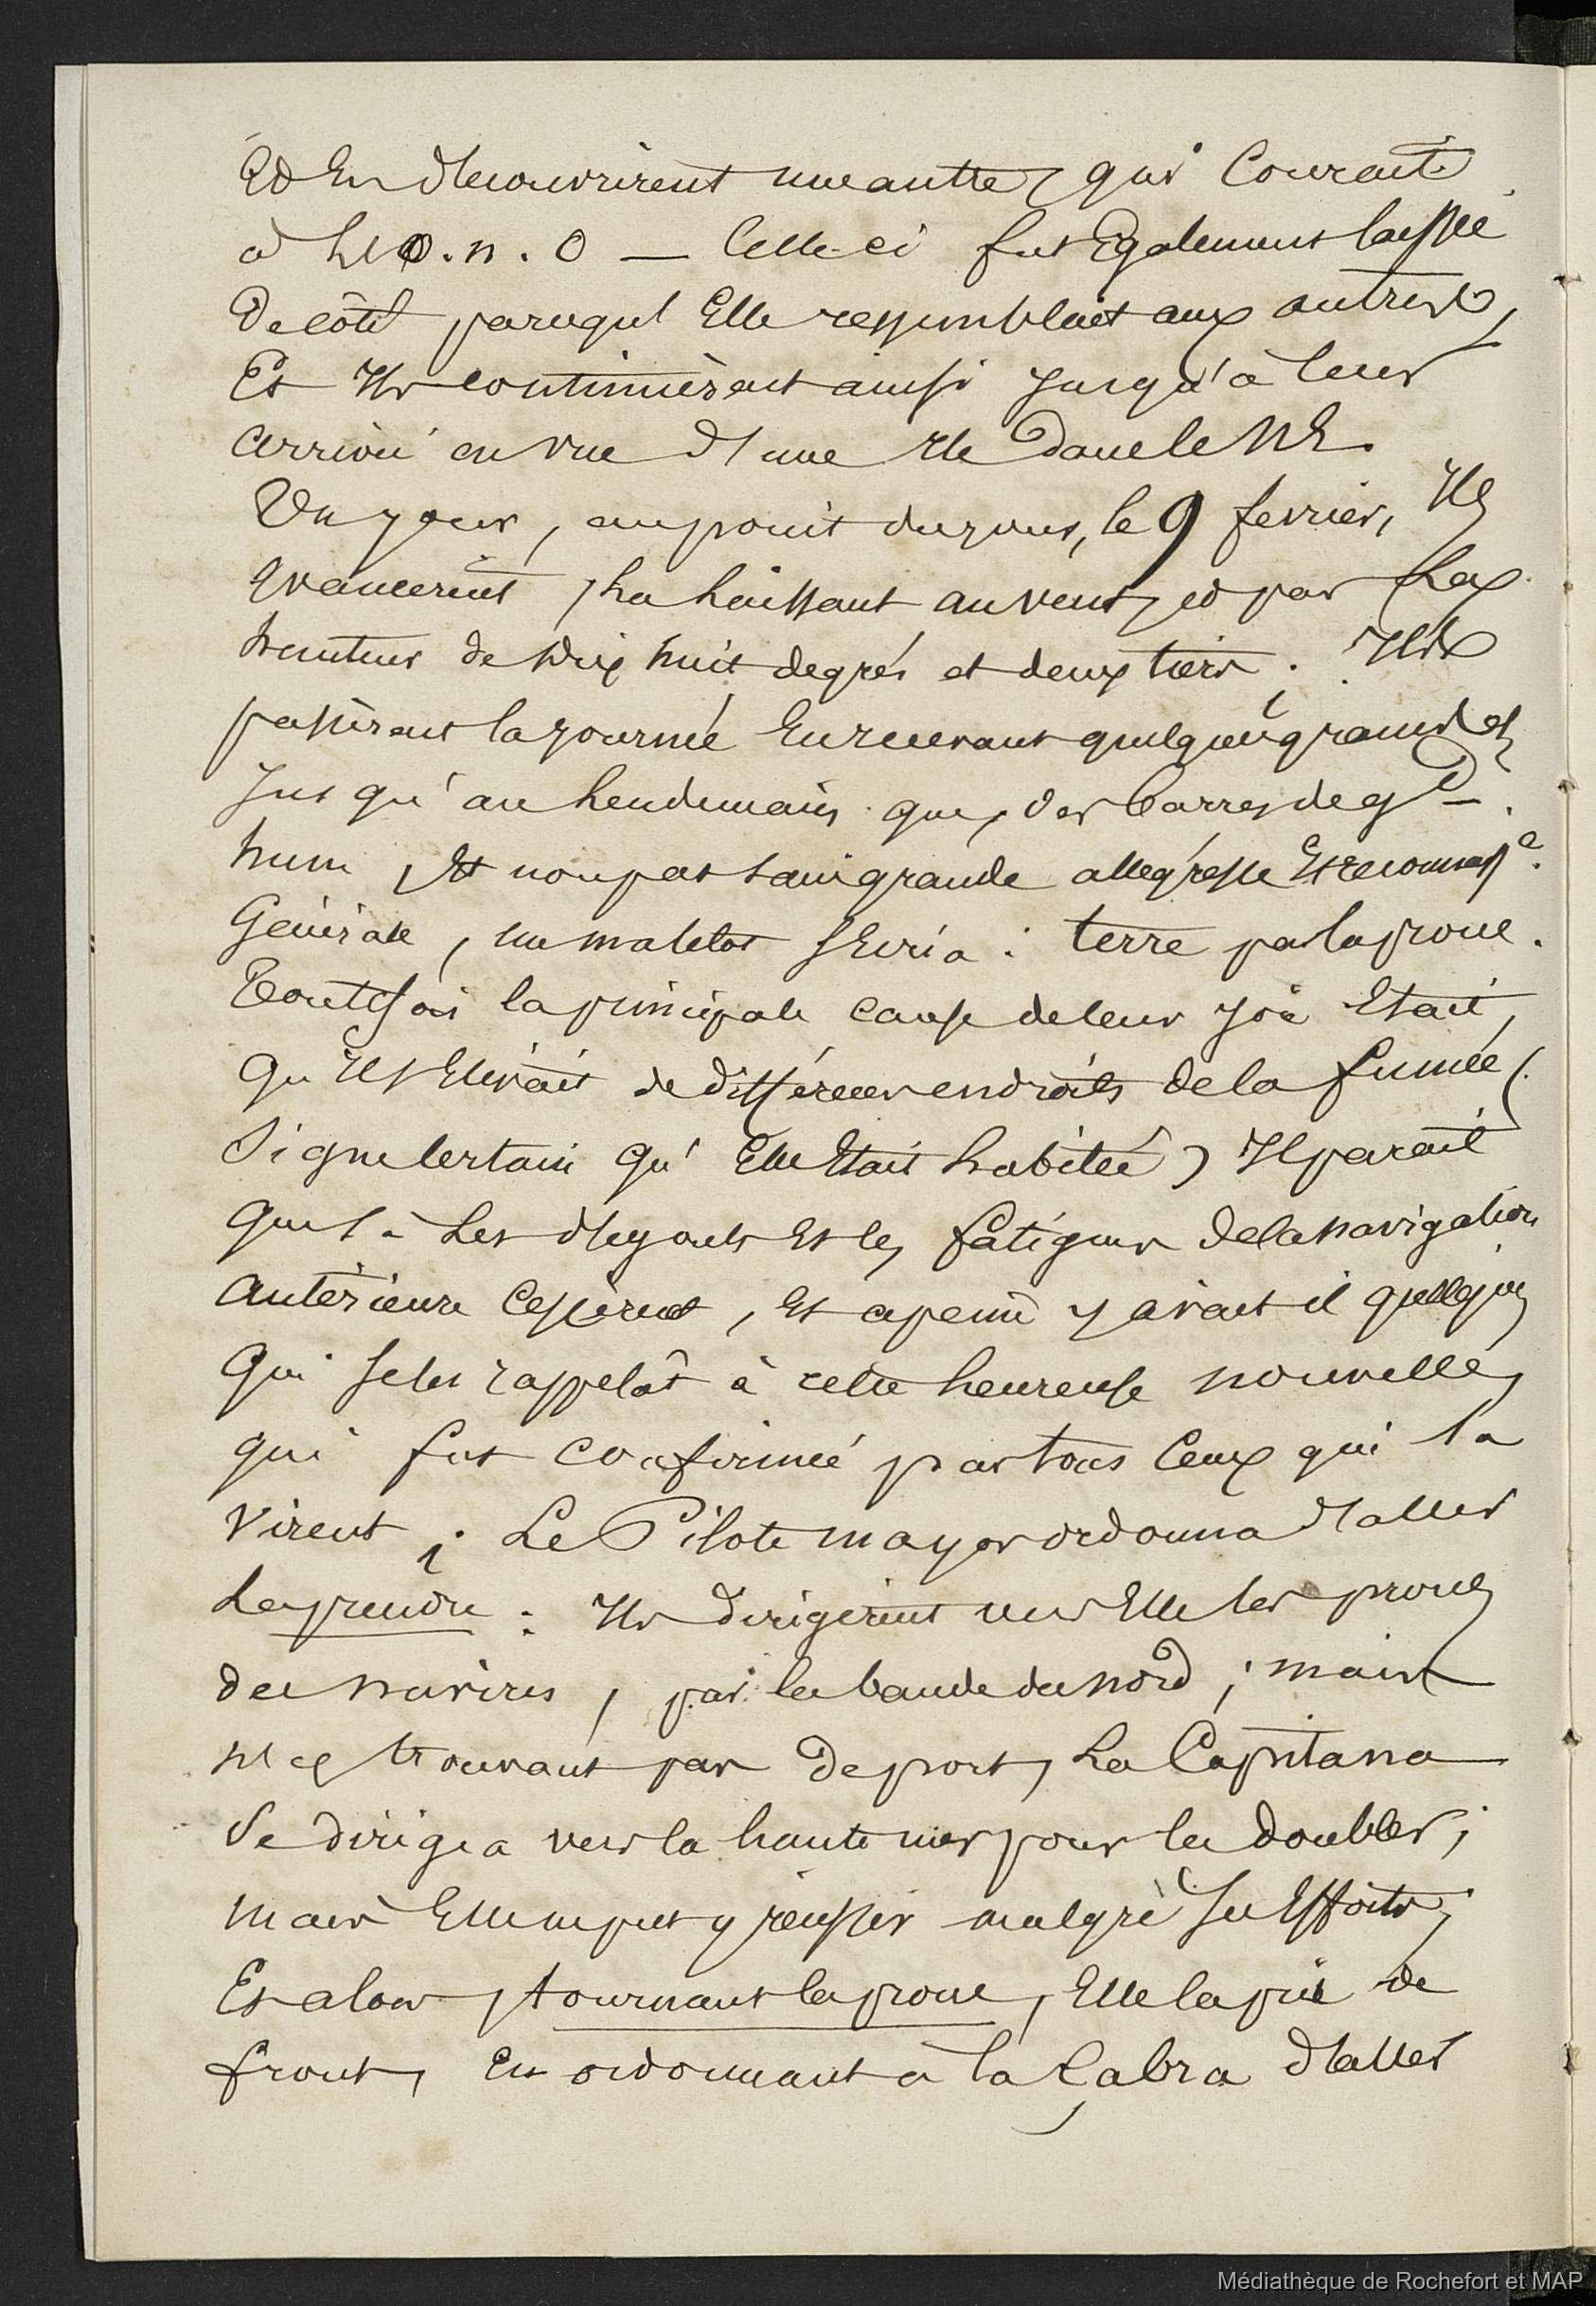 Et En découvrirent une autre, qui Courait
à l'O.n.O — Celle-ci fut Egalement laissée
De côté parcequ' Elle ressemblait aux autres,
Et Ils continuèrent ainsi jusqu'à leur
arrivée en vue d'une Ile dans le NE.
Un jour, au point du jour, le 9 fevrier, Ils
avancerent, la laissant au vent, et par la
hauteur de dix huit degrés et deux tiers. Ils
passèrent la journée En recevant quelques grains et
Jusqu'au lendemain que, des barres de gd
hune, Et non pas sans grande allégresse Et reconnaisce
Générale, un matelot s'Ecria : terre par la proue.
Toutefois la principale cause de leur joie Etait,
Qu'Il s'Elevait de différens endroits de la fumée (
Signe Certain qu' Elle Etait habitée) Il parait
que là Les dégouts Et les fatigues de la navigation
antérieure Cessèrent, Et a peine y avait il quelqu'un
Qui se les rappelât à cette heureuse nouvelle,
qui fut confirmée par tous Ceux qui la
Virent ; Le Pilote mayor ordonna d'aller
La prendre : Ils dirigèrent vers Elle les proues
des navires, par la bande du nord ; mais
ne trouvant pas De port, La Capitana
Se dirigea vers la haute mer pour la doubler ;
mais Elle ne put y réussir malgré ses Efforts ;
Et alors, tournant la proue, Elle la prit de
front, En ordonnant à la Zabra d'aller
Médiathèque de Rochefort et MAP